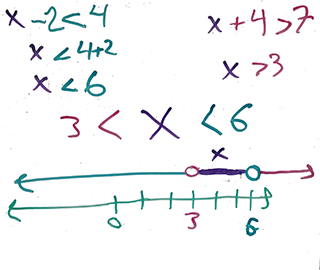 x - 2 < 4
x < 4+2
x < 6
x + 4 > 7
x > 3
3 < x < 6
x
0 3 6